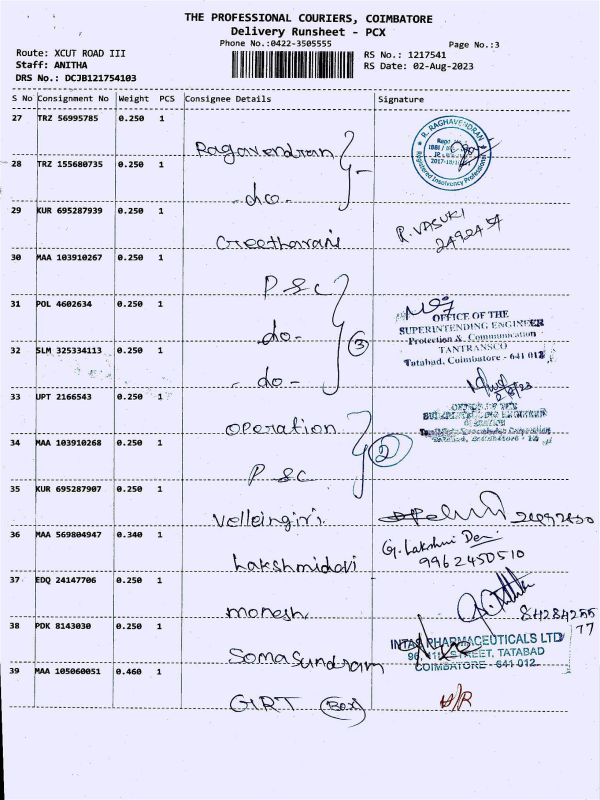 THE PROFESSIONAL COURIERS, COIMBATORE
Delivery Runsheet - PCX
Phone No.:0422-3505555
Page No.:3
Route: XCUT ROAD III
RS No.: 1217541
Staff: ANITHA
RS Date: 02-Aug-2023
DRS No.: DCJB121754103
S No Consignment No Weight PCS Consignee Details Signature
27 TRZ 56995785 0.250 1
Ragavendran
R. RAGHAVENDRAN
Registered Insolvency Professional
28 TRZ 155680735 0.250 1
-do-
29 KUR 695287939 0.250 1
Geetharani
R. VASUKI
2492454
30 MAA 103910267 0.250 1
P&C
31 POL 4602634 0.250 1
-do-
3
OFFICE OF THE
SUPERINTENDING ENGINEER
Protection & Communication
TANTRANSCO
Tatabad, Coimbatore - 641 012
32 SLM 325334113 0.250 1
-do-
2/8/23
33 UPT 2166543 0.250 1
operation
OFFICE OF THE
SUPERINTENDING ENGINEER
34 MAA 103910268 0.250 1
P&C
2
35 KUR 695287907 0.250 1
Velleingiri
36 MAA 569804947 0.340 1
Lakshmidevi
G. Lakshmi Devi
9962450510
37 EDQ 24147706 0.250 1
monesh
84284255
77
38 PDK 8143030 0.250 1
Somasundram
INTAS PHARMACEUTICALS LTD
STREET, TATABAD
COIMBATORE - 641 012
39 MAA 105060051 0.460 1
GIRT Box